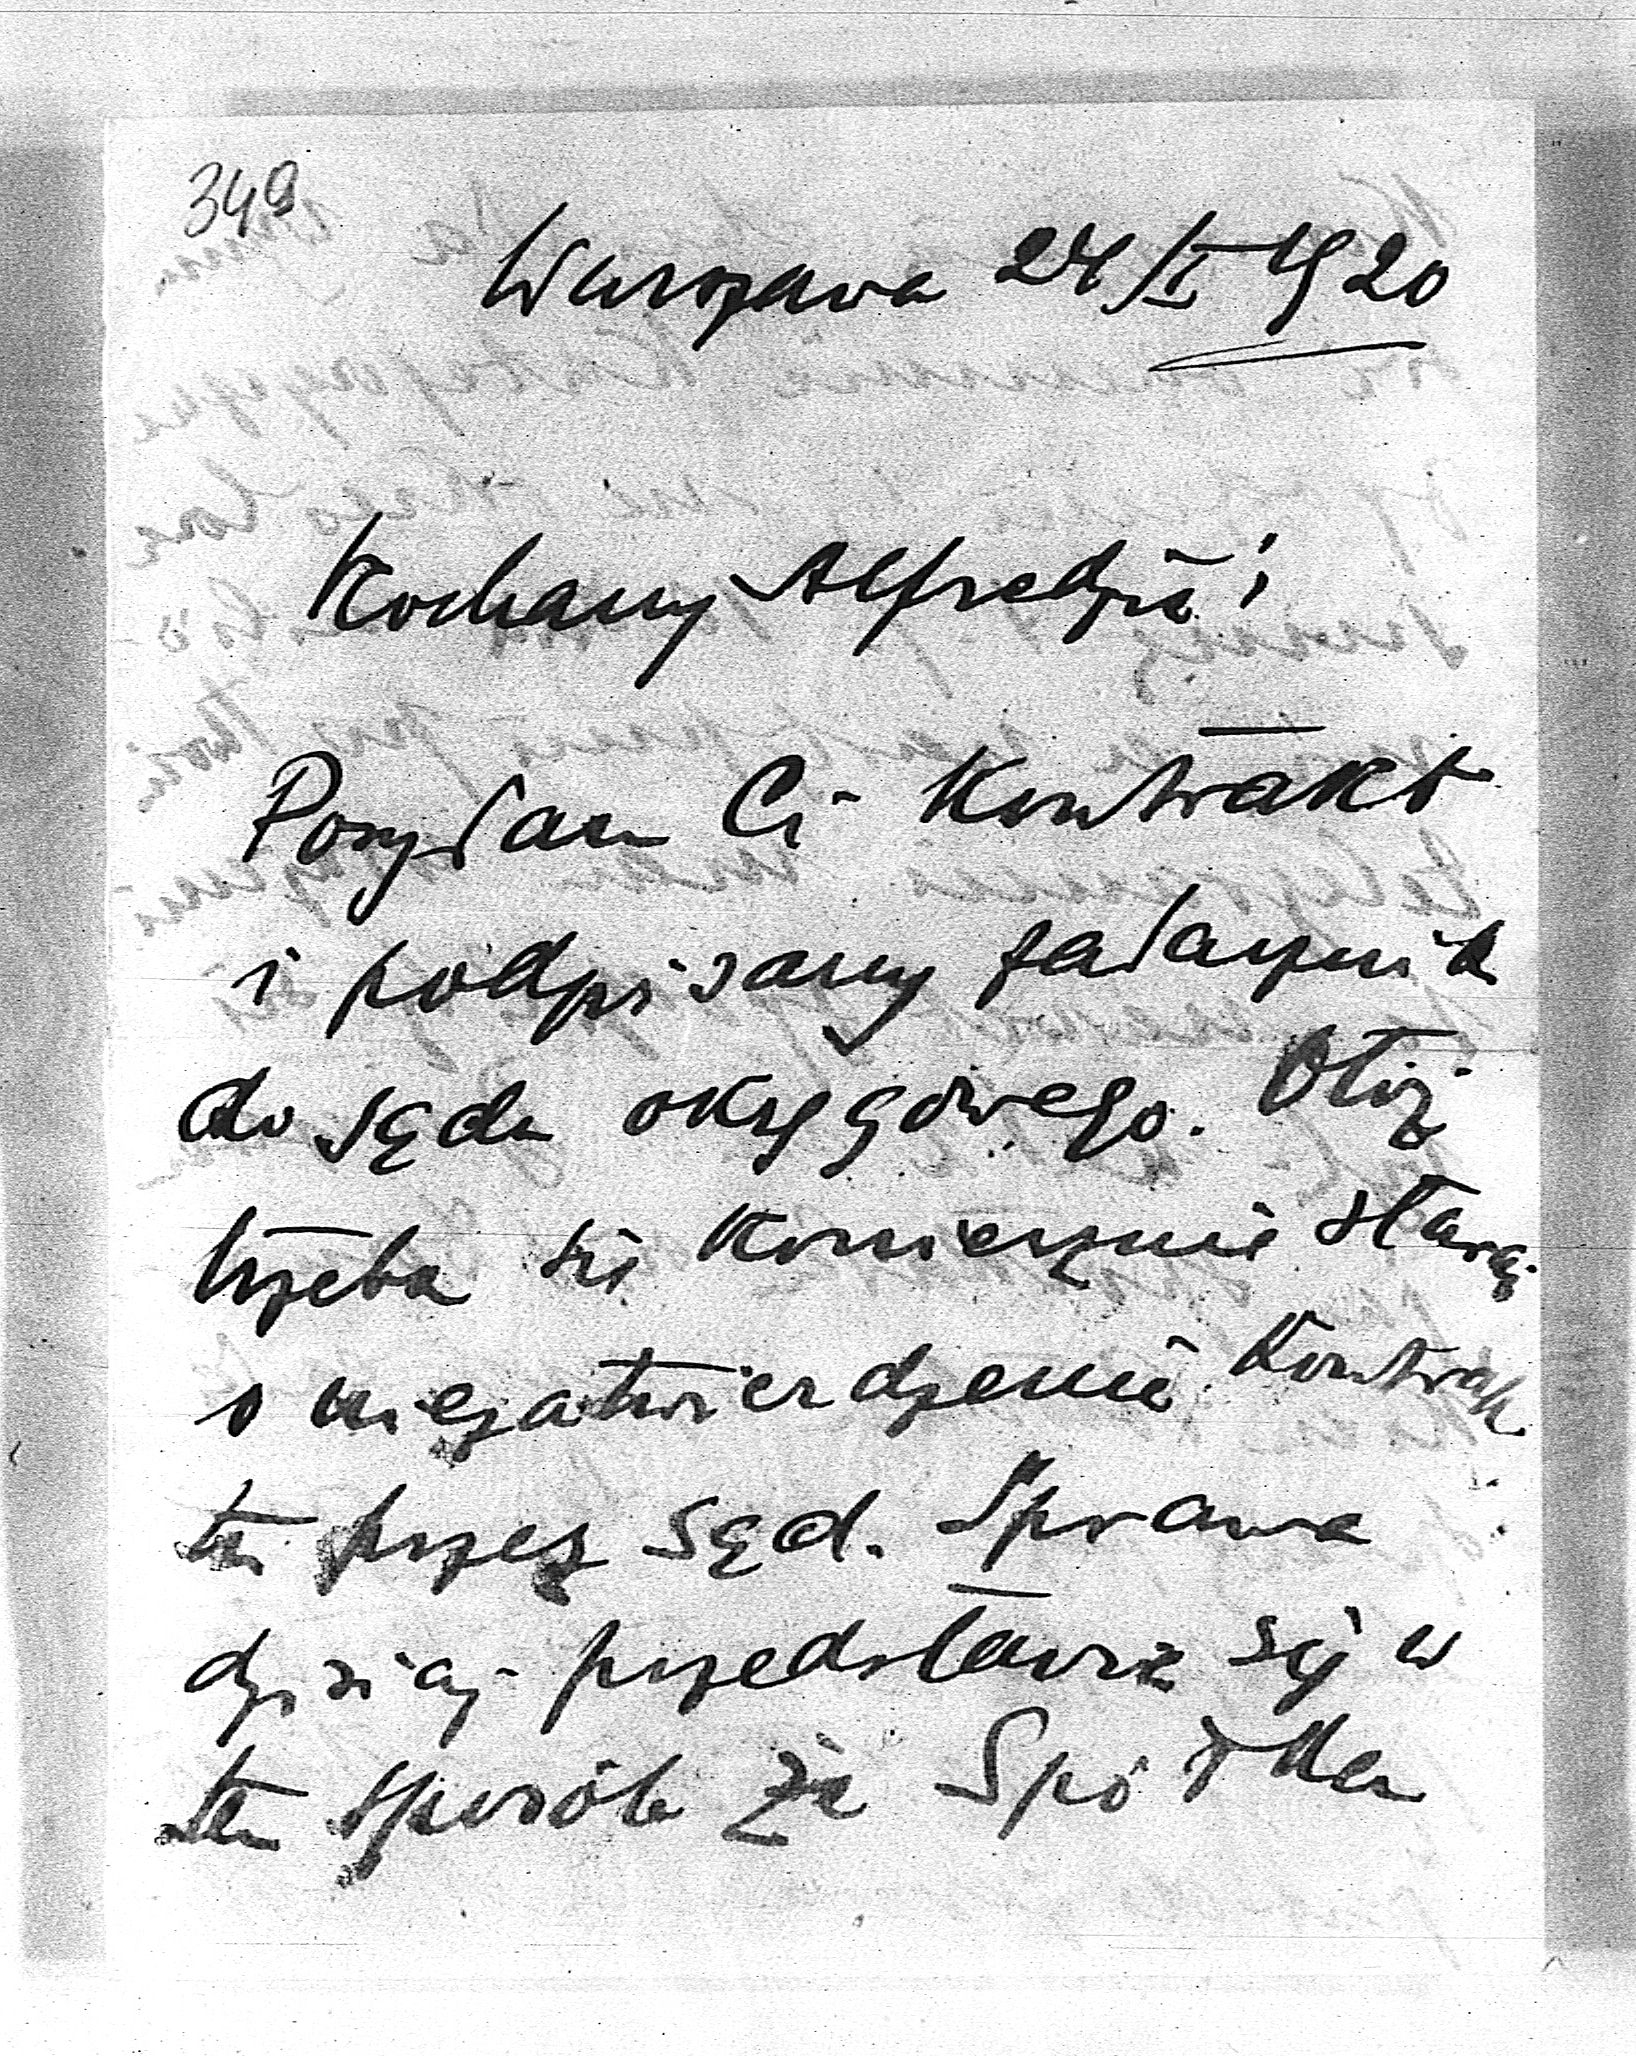 349
Warszawa 24/I 1920
Kochany Alfredzie!
Posyłam Ci Kontrakt
i podpisany załącznik
do sądu okręgowego. Otóż
trzeba się koniecznie starać
o niezatwierdzenie Kontrak
tu przez Sąd. Sprawa
dzisiaj przedstawia się w
ten sposób że Spółka